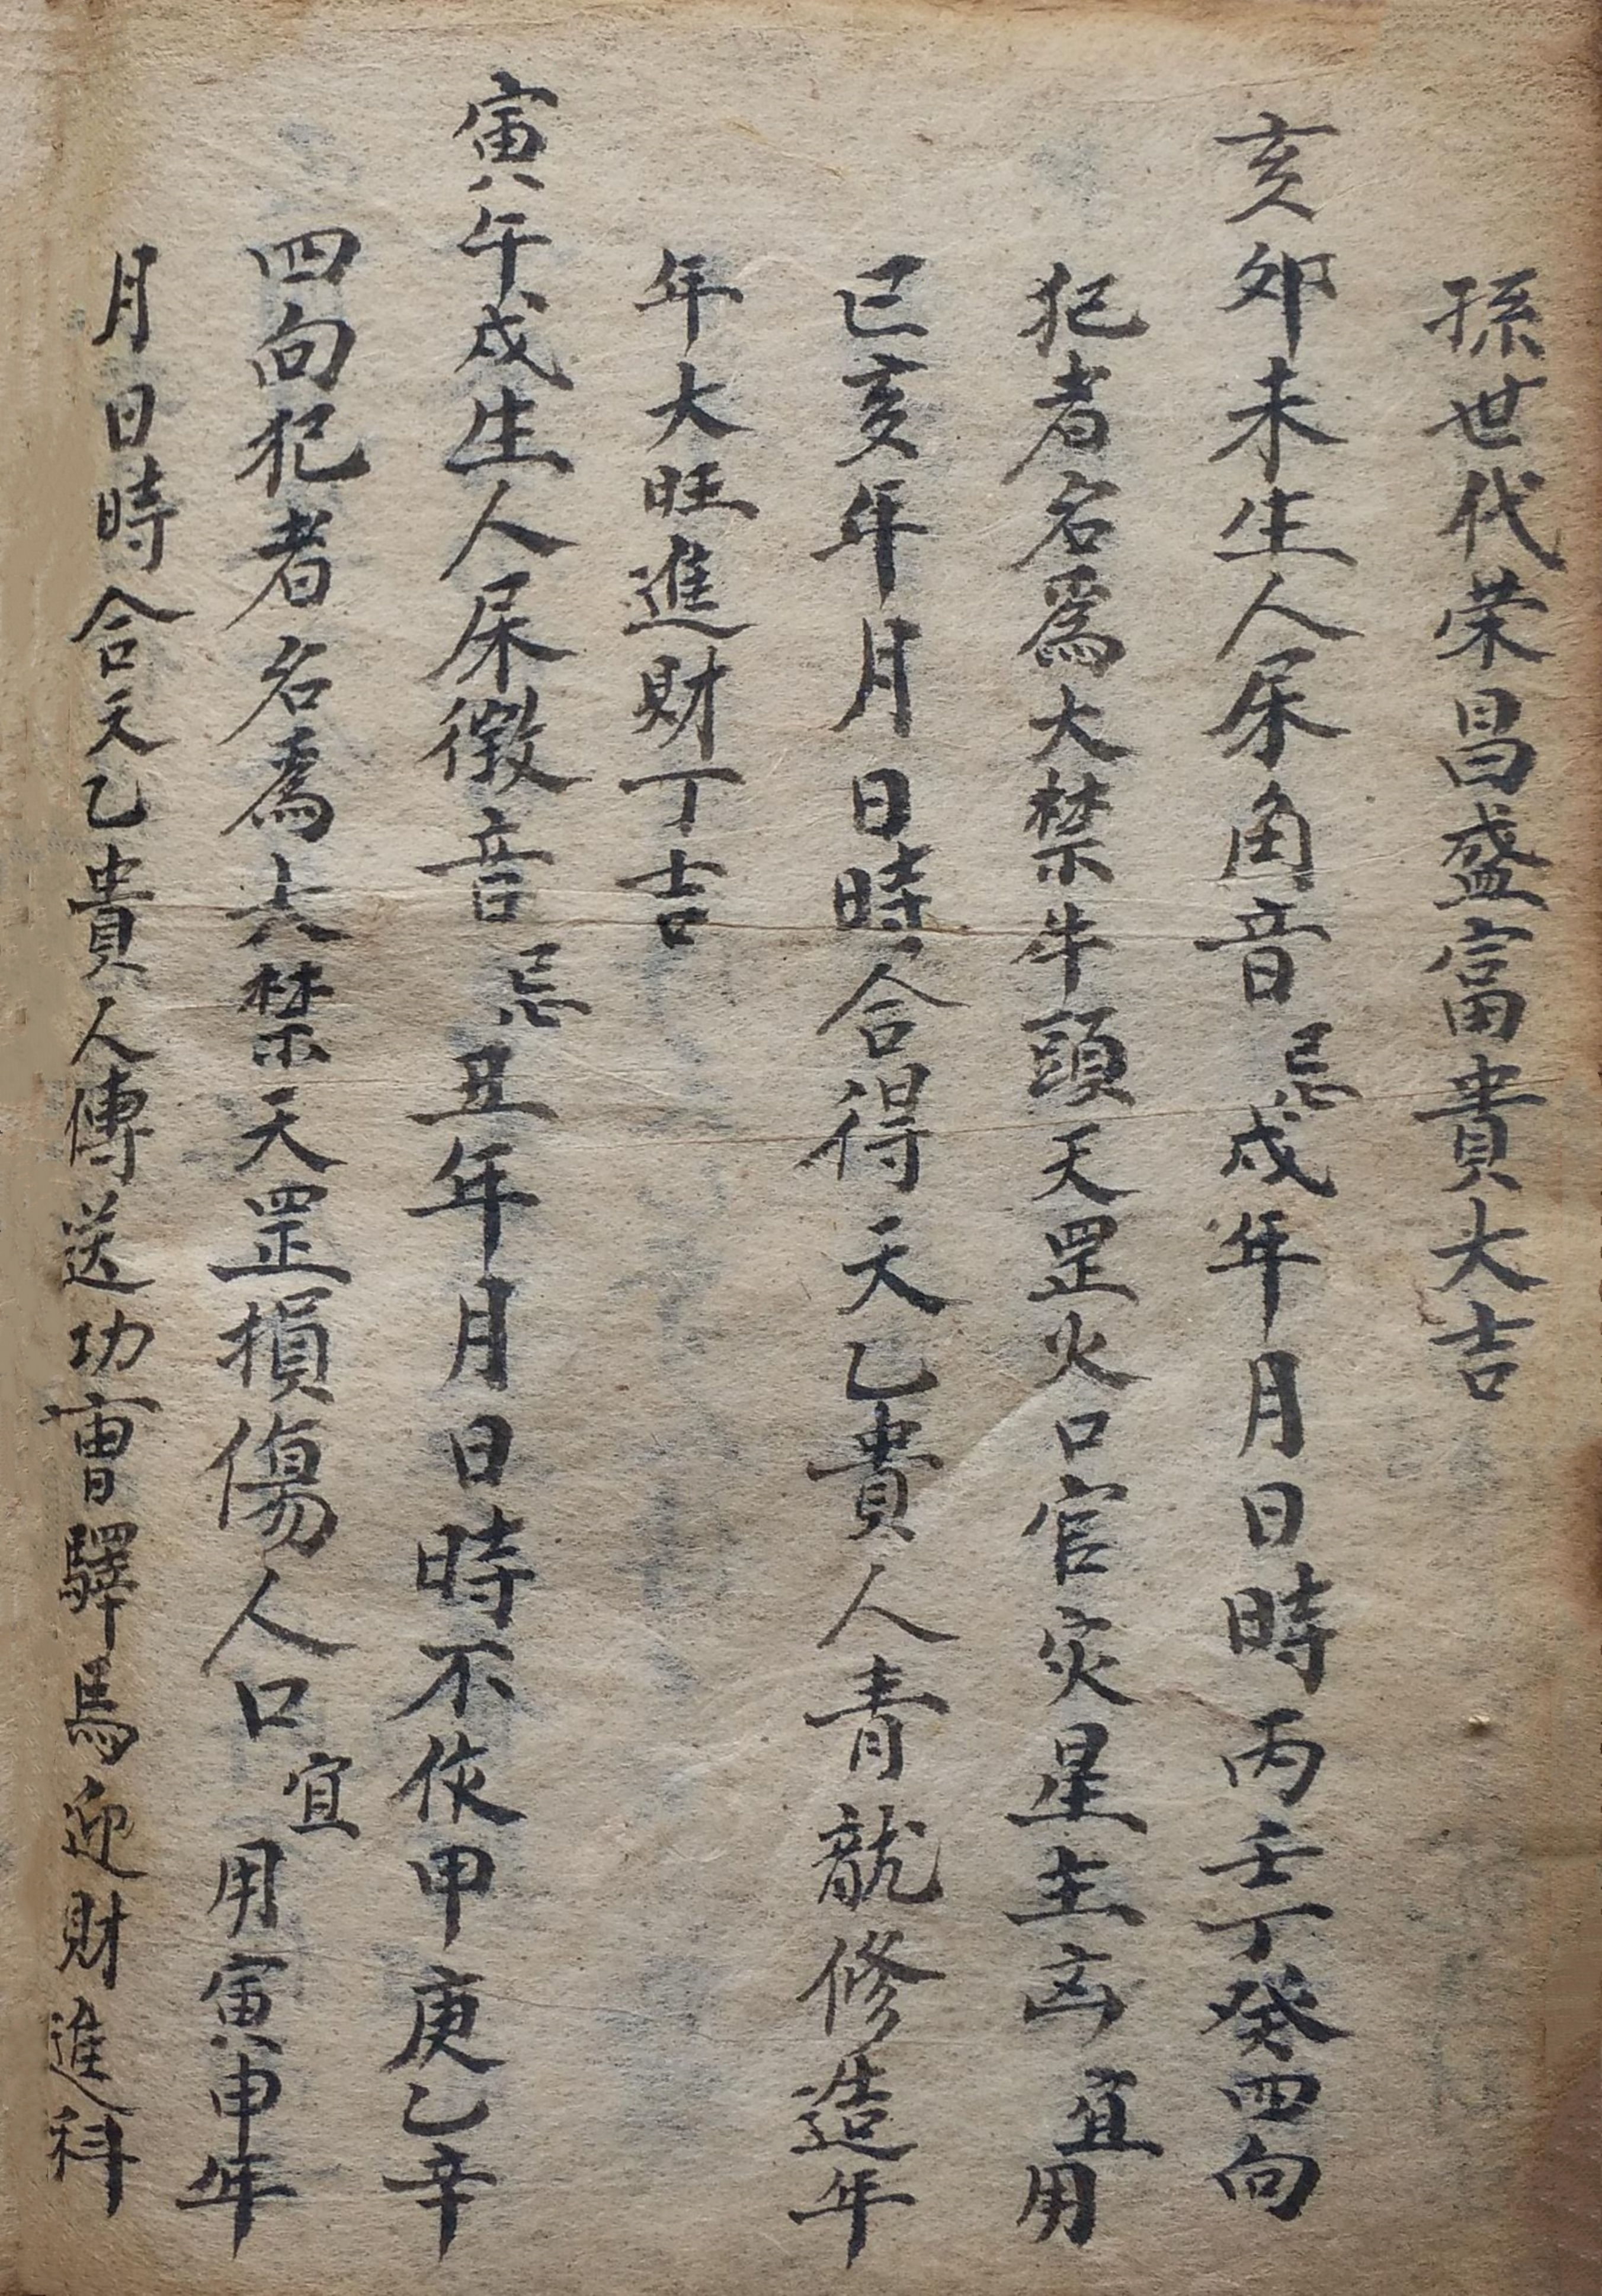 孫世代荣昌盛富貴大吉
亥卯未生人屎角音忌戌年月日時丙壬丁癸四向
犯者名為大禁牛頭天罡火口官灾星主凶宜用
巳亥年月日時合得天乙貴人青龍修造年
年大旺進財丁吉
寅午戌生人屎徵音忌丑年月日時不作甲庚乙辛
四向犯者名為大禁天罡損傷人口宜用寅申年
月日時合天乙貴人傳送功曹驛馬迎財進科